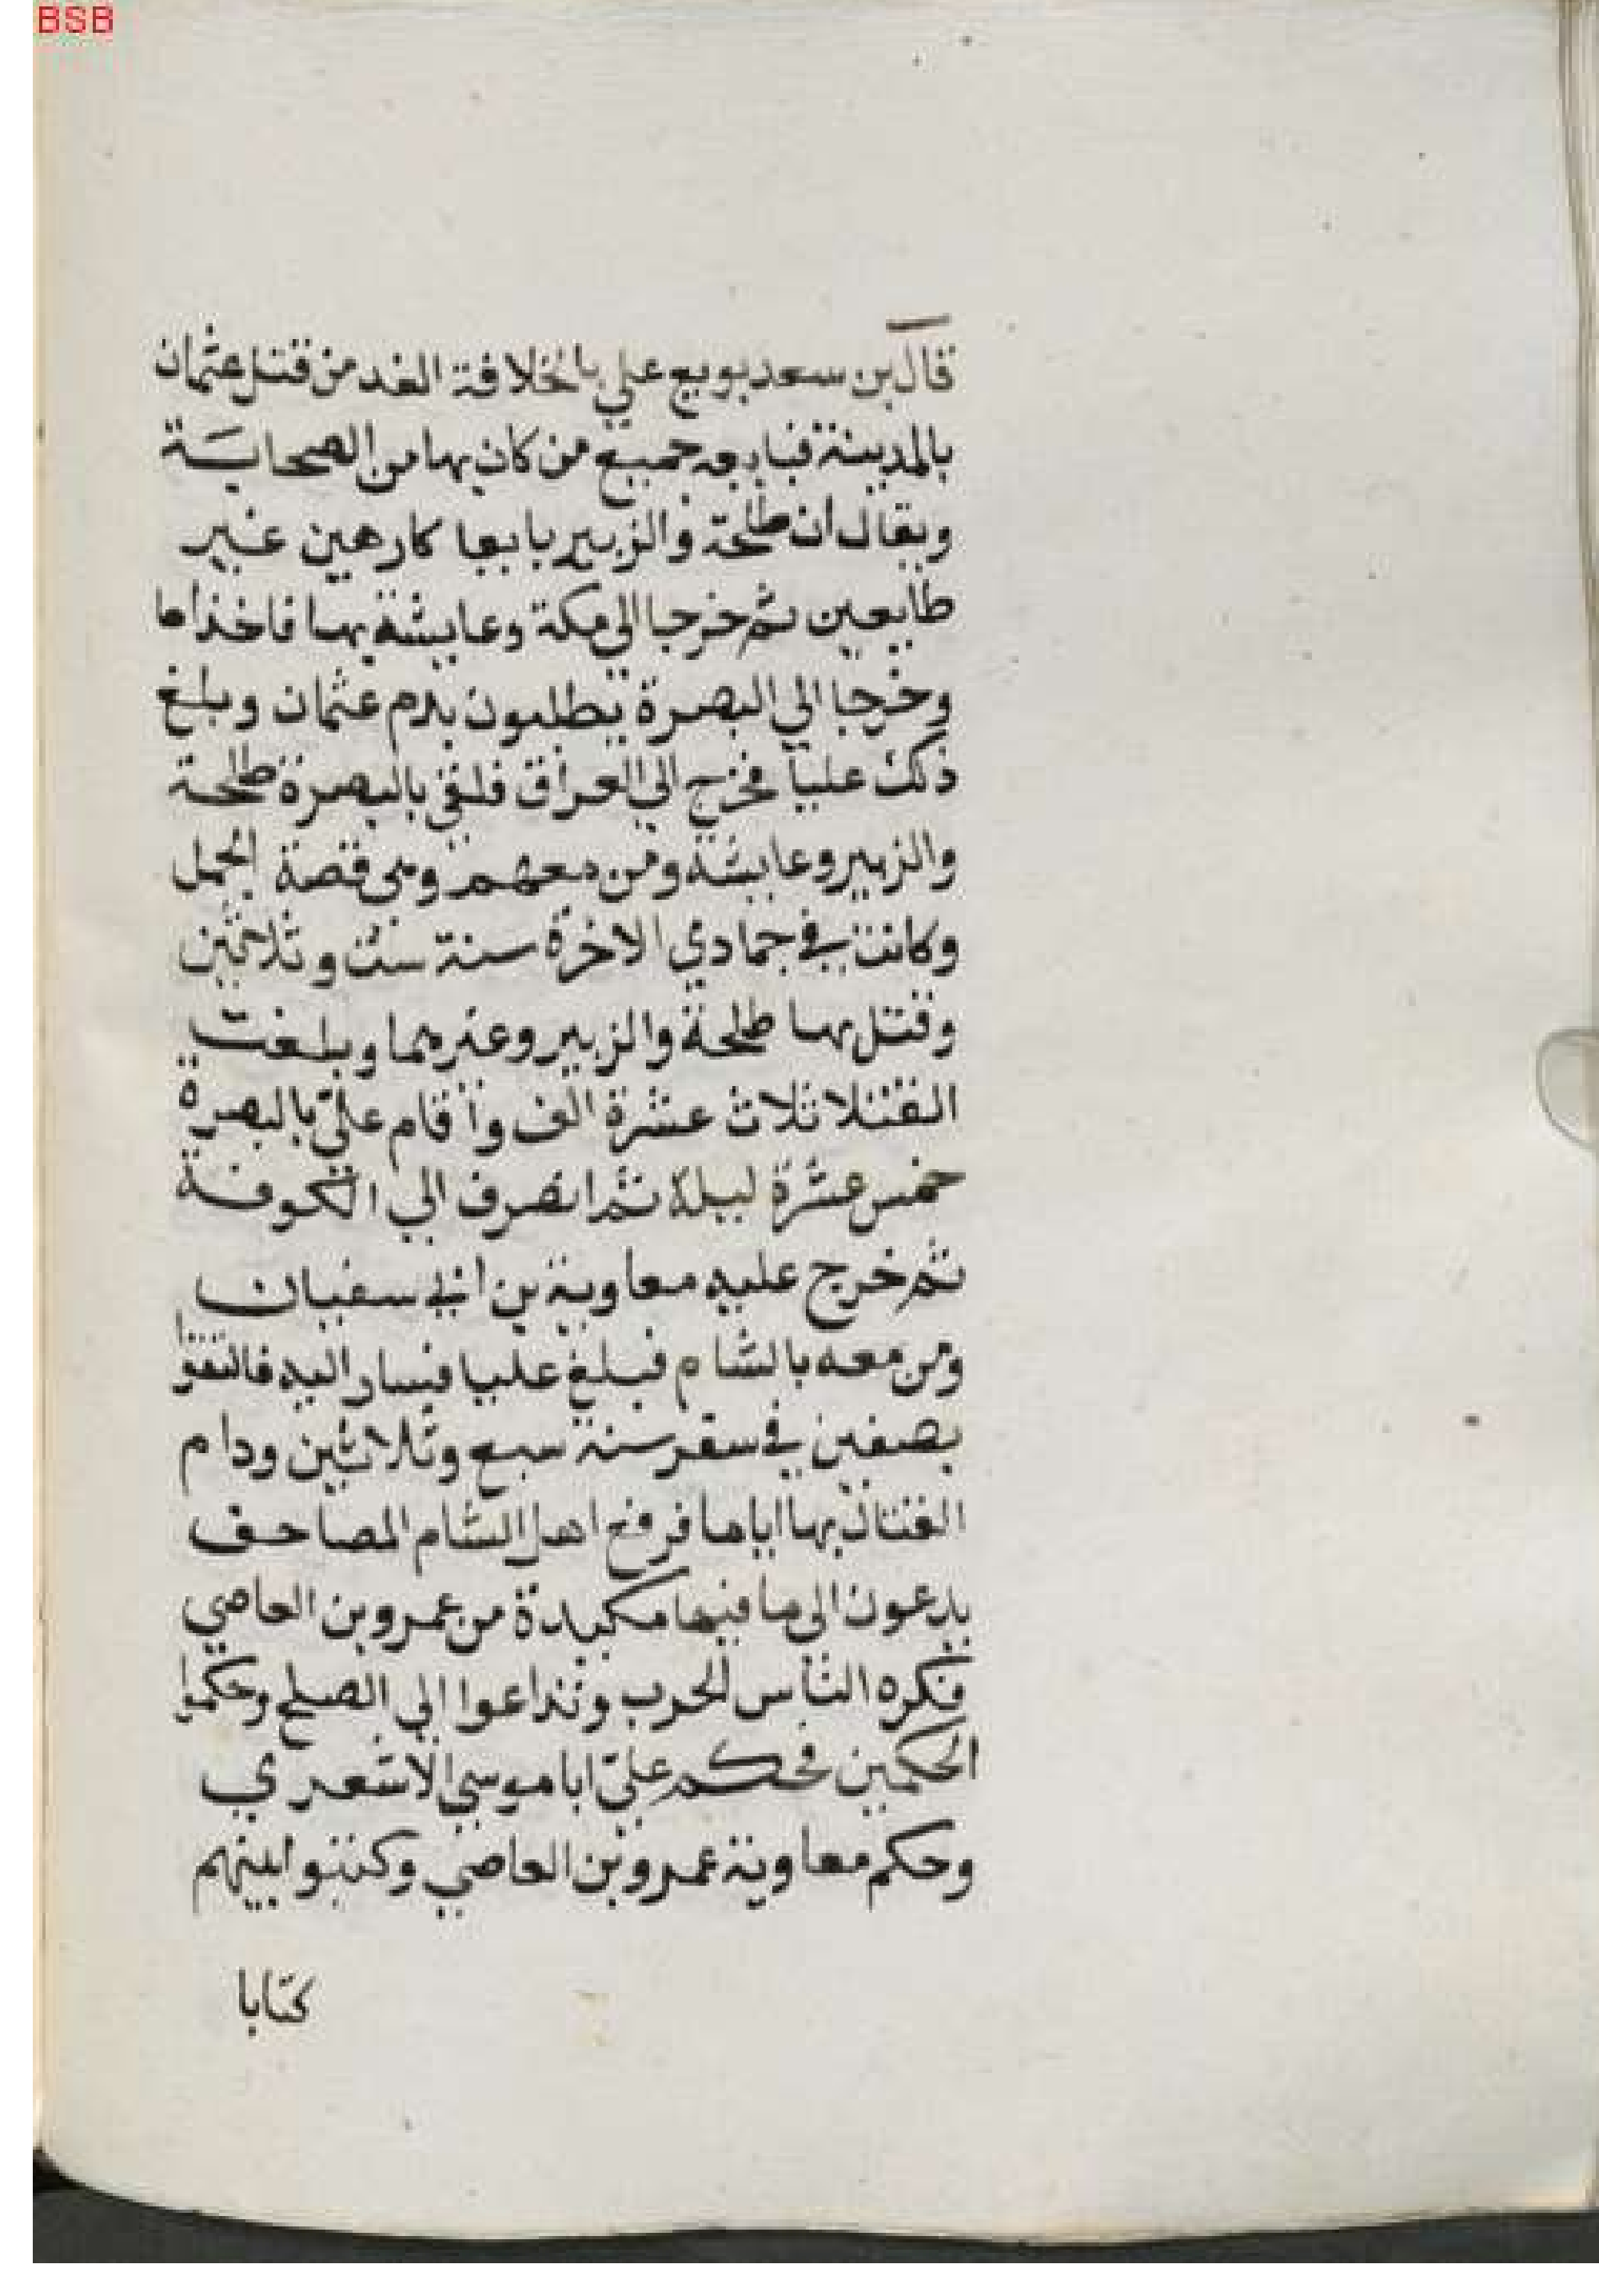 BSB
قال بن سعد بويع علي بالخلافة الغد من قتل عثمان
بالمدينة فبايعه جميع من كان بها من الصحابة
ويقال ان طلحة والزبير بايعا كارهين غير
طايعين ثم خرجا الي مكة وعايشة بها فاخذاها
وخرجا الي البصرة يطلبون بدم عثمان وبلغ
ذلك عليا فخرج الي العراق فلقي بالبصرة طلحة
والزبير وعايشة ومن معهم وهي قصة الجمل
وكانت في جمادي الاخرة سنة ست وثلاثين
وقتل بها طلحة والزبير وغيرهما وبلغت
القتلا ثلاث عشرة الف وأقام عليّ بالبصرة
خمس عشرة ليلة ثم انصرف الي الكوفة
ثم خرج عليه معاوية بن ابي سفيان
ومن معه بالشام فبلغ عليا فسار اليه فالتقوا
بصفين في سفر سنة سبع وثلاثين ودام
القتال بها اياما فرفع اهل الشام المصاحف
يدعون الي ما فيها مكيدة من عمرو بن العاصي
فكره الناس الحرب وتداعوا الي الصلح وحكموا
الحكمين فحكم عليّ ابا موسي الاشعري
وحكم معاوية عمرو بن العاصي وكتبوا بينهم
كتابا